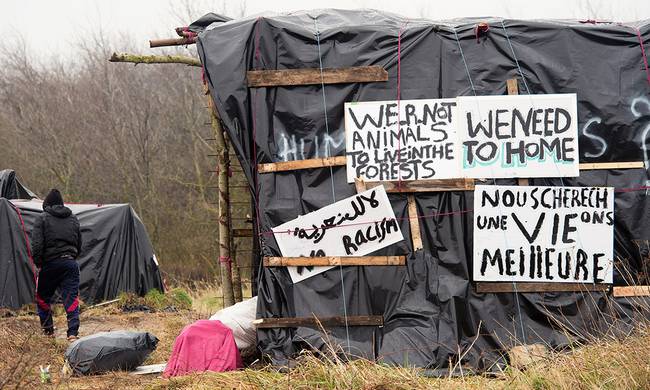 WE.R.NOT
ANIMALS
TO LIVE IN THE
FORESTS
WE NEED
TO HOME
HUM
S?
لا للعنصرية
NO RACISM
NOUS CHERECH
UNE VIE ONS
MEILLEURE